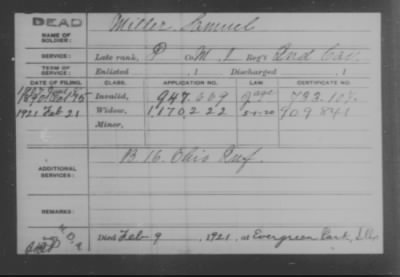 DEAD
NAME OF SOLDIER:
Miller Samuel
SERVICE:
Late rank, P Co. M, 1 Reg't Ind Cav.
TERM OF SERVICE:
Enlisted , 1 Discharged , 1
DATE OF FILING. CLASS. APPLICATION NO. LAW. CERTIFICATE NO.
Invalid, 947.669
1921 Feb 21 Widow, 1170,222 909 841
Minor,
ADDITIONAL SERVICES:
B 16. Ohio Inf.
REMARKS:
Died Feb 9 , 1921, at Evergreen Park, Ills